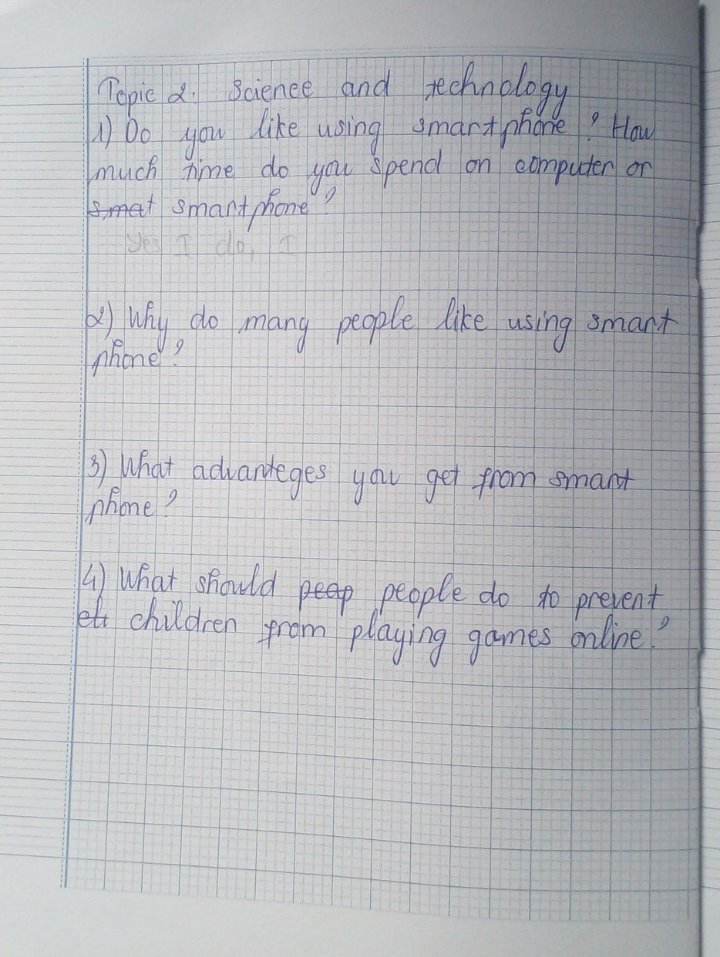 Topic 2. Science and technology
1) Do you like using smartphone? How
much time do you spend on computer or
smat smartphone?
Yes I do, I
2) Why do many people like using smart
phone?
3) What advanteges you get from smart
phone?
4) What should peop people do to prevent
children from playing games online?